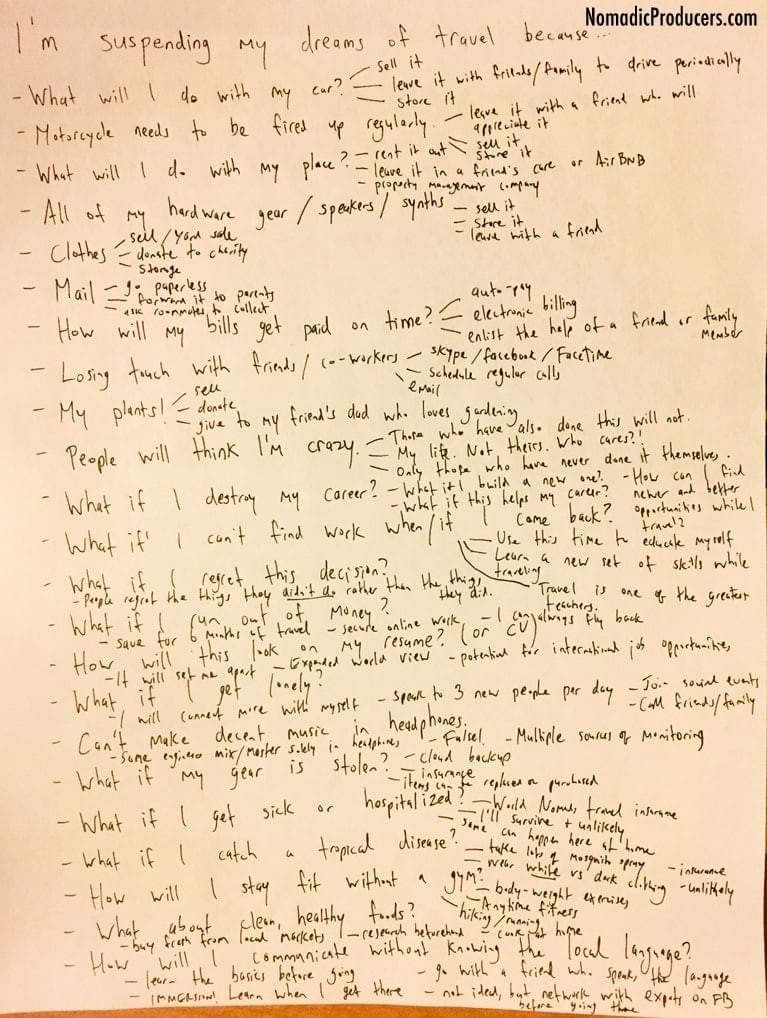 NomadicProducers.com
I'm suspending my dreams of travel because...
- What will I do with my car? - sell it
- leave it with friends/family to drive periodically
- store it
- Motorcycle needs to be fired up regularly. - leave it with a friend who will appreciate it
- sell it
- store it
- What will I do with my place? - rent it out
- leave it in a friend's care or AirBNB
- property management company
- All of my hardware gear / speakers / synths - sell it
- store it
- leave with a friend
- Clothes - sell / yard sale
- donate to charity
- storage
- Mail - go paperless
- forward it to parents
- ask roommates to collect
- How will my bills get paid on time? - auto-pay
- electronic billing
- enlist the help of a friend or family member
- Losing touch with friends / co-workers - skype / facebook / FaceTime
- schedule regular calls
- email
- My plants! - sell
- donate
- give to my friend's dad who loves gardening
- People will think I'm crazy. - Those who have also done this will not.
- My life. Not theirs. Who cares?!
- Only those who have never done it themselves.
- What if I destroy my career? - What if I build a new one?
- What if this helps my career?
- How can I find newer and better opportunities while I travel?
- What if I can't find work when/if I come back?
- Use this time to educate myself
- Learn a new set of skills while traveling
- Travel is one of the greatest teachers.
- What if I regret this decision?
- People regret the things they didn't do rather than the things they did.
- What if I run out of money?
- save for 6 months of travel - secure online work - I can always fly back
- How will this look on my resume? (or CV)
- It will set me apart - Expanded world view - potential for international job opportunities
- What if I get lonely?
- I will connect more with myself - speak to 3 new people per day - Join social events
- Call friends/family
- Can't make decent music in headphones.
- Some engineers mix/master solely in headphones - False! - Multiple sources of monitoring
- What if my gear is stolen? - cloud backup
- insurance
- items can be replaced or purchased
- What if I get sick or hospitalized? - World Nomads travel insurance
- I'll survive + unlikely
- same can happen here at home
- What if I catch a tropical disease? - take lots of mosquito spray
- wear white vs dark clothing - insurance
- unlikely
- How will I stay fit without a gym? - body-weight exercises
- Anytime fitness
- hiking/running
- What about clean, healthy foods?
- buy fresh from local markets - research beforehand - cook at home
- How will I communicate without knowing the local language?
- learn the basics before going - go with a friend who speaks the language
- IMMERSION! Learn when I get there - not ideal, but network with expats on FB before going there